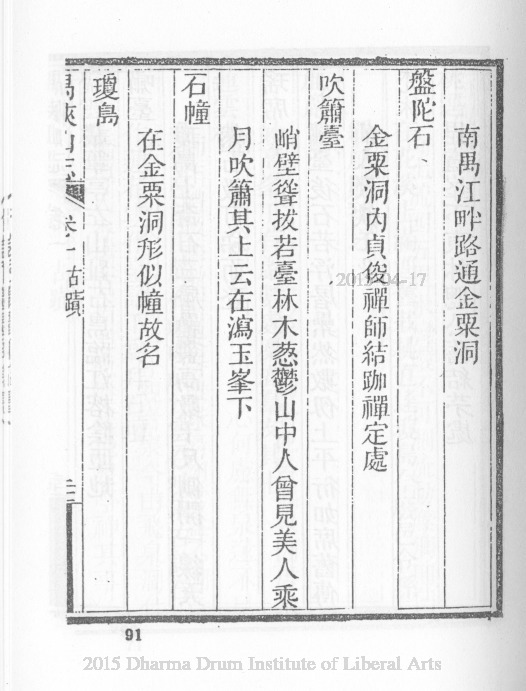 南禺江畔路通金粟洞
盤陀石
金粟洞內貞俊禪師結跏禪定處
吹簫臺
峭壁聳拔若臺林木葱鬱山中人曾見美人乘
月吹簫其上云在瀉玉峯下
石幢
在金粟洞形似幢故名
瓊島
禺峽山志 卷一 古蹟
91
2015 Dharma Drum Institute of Liberal Arts